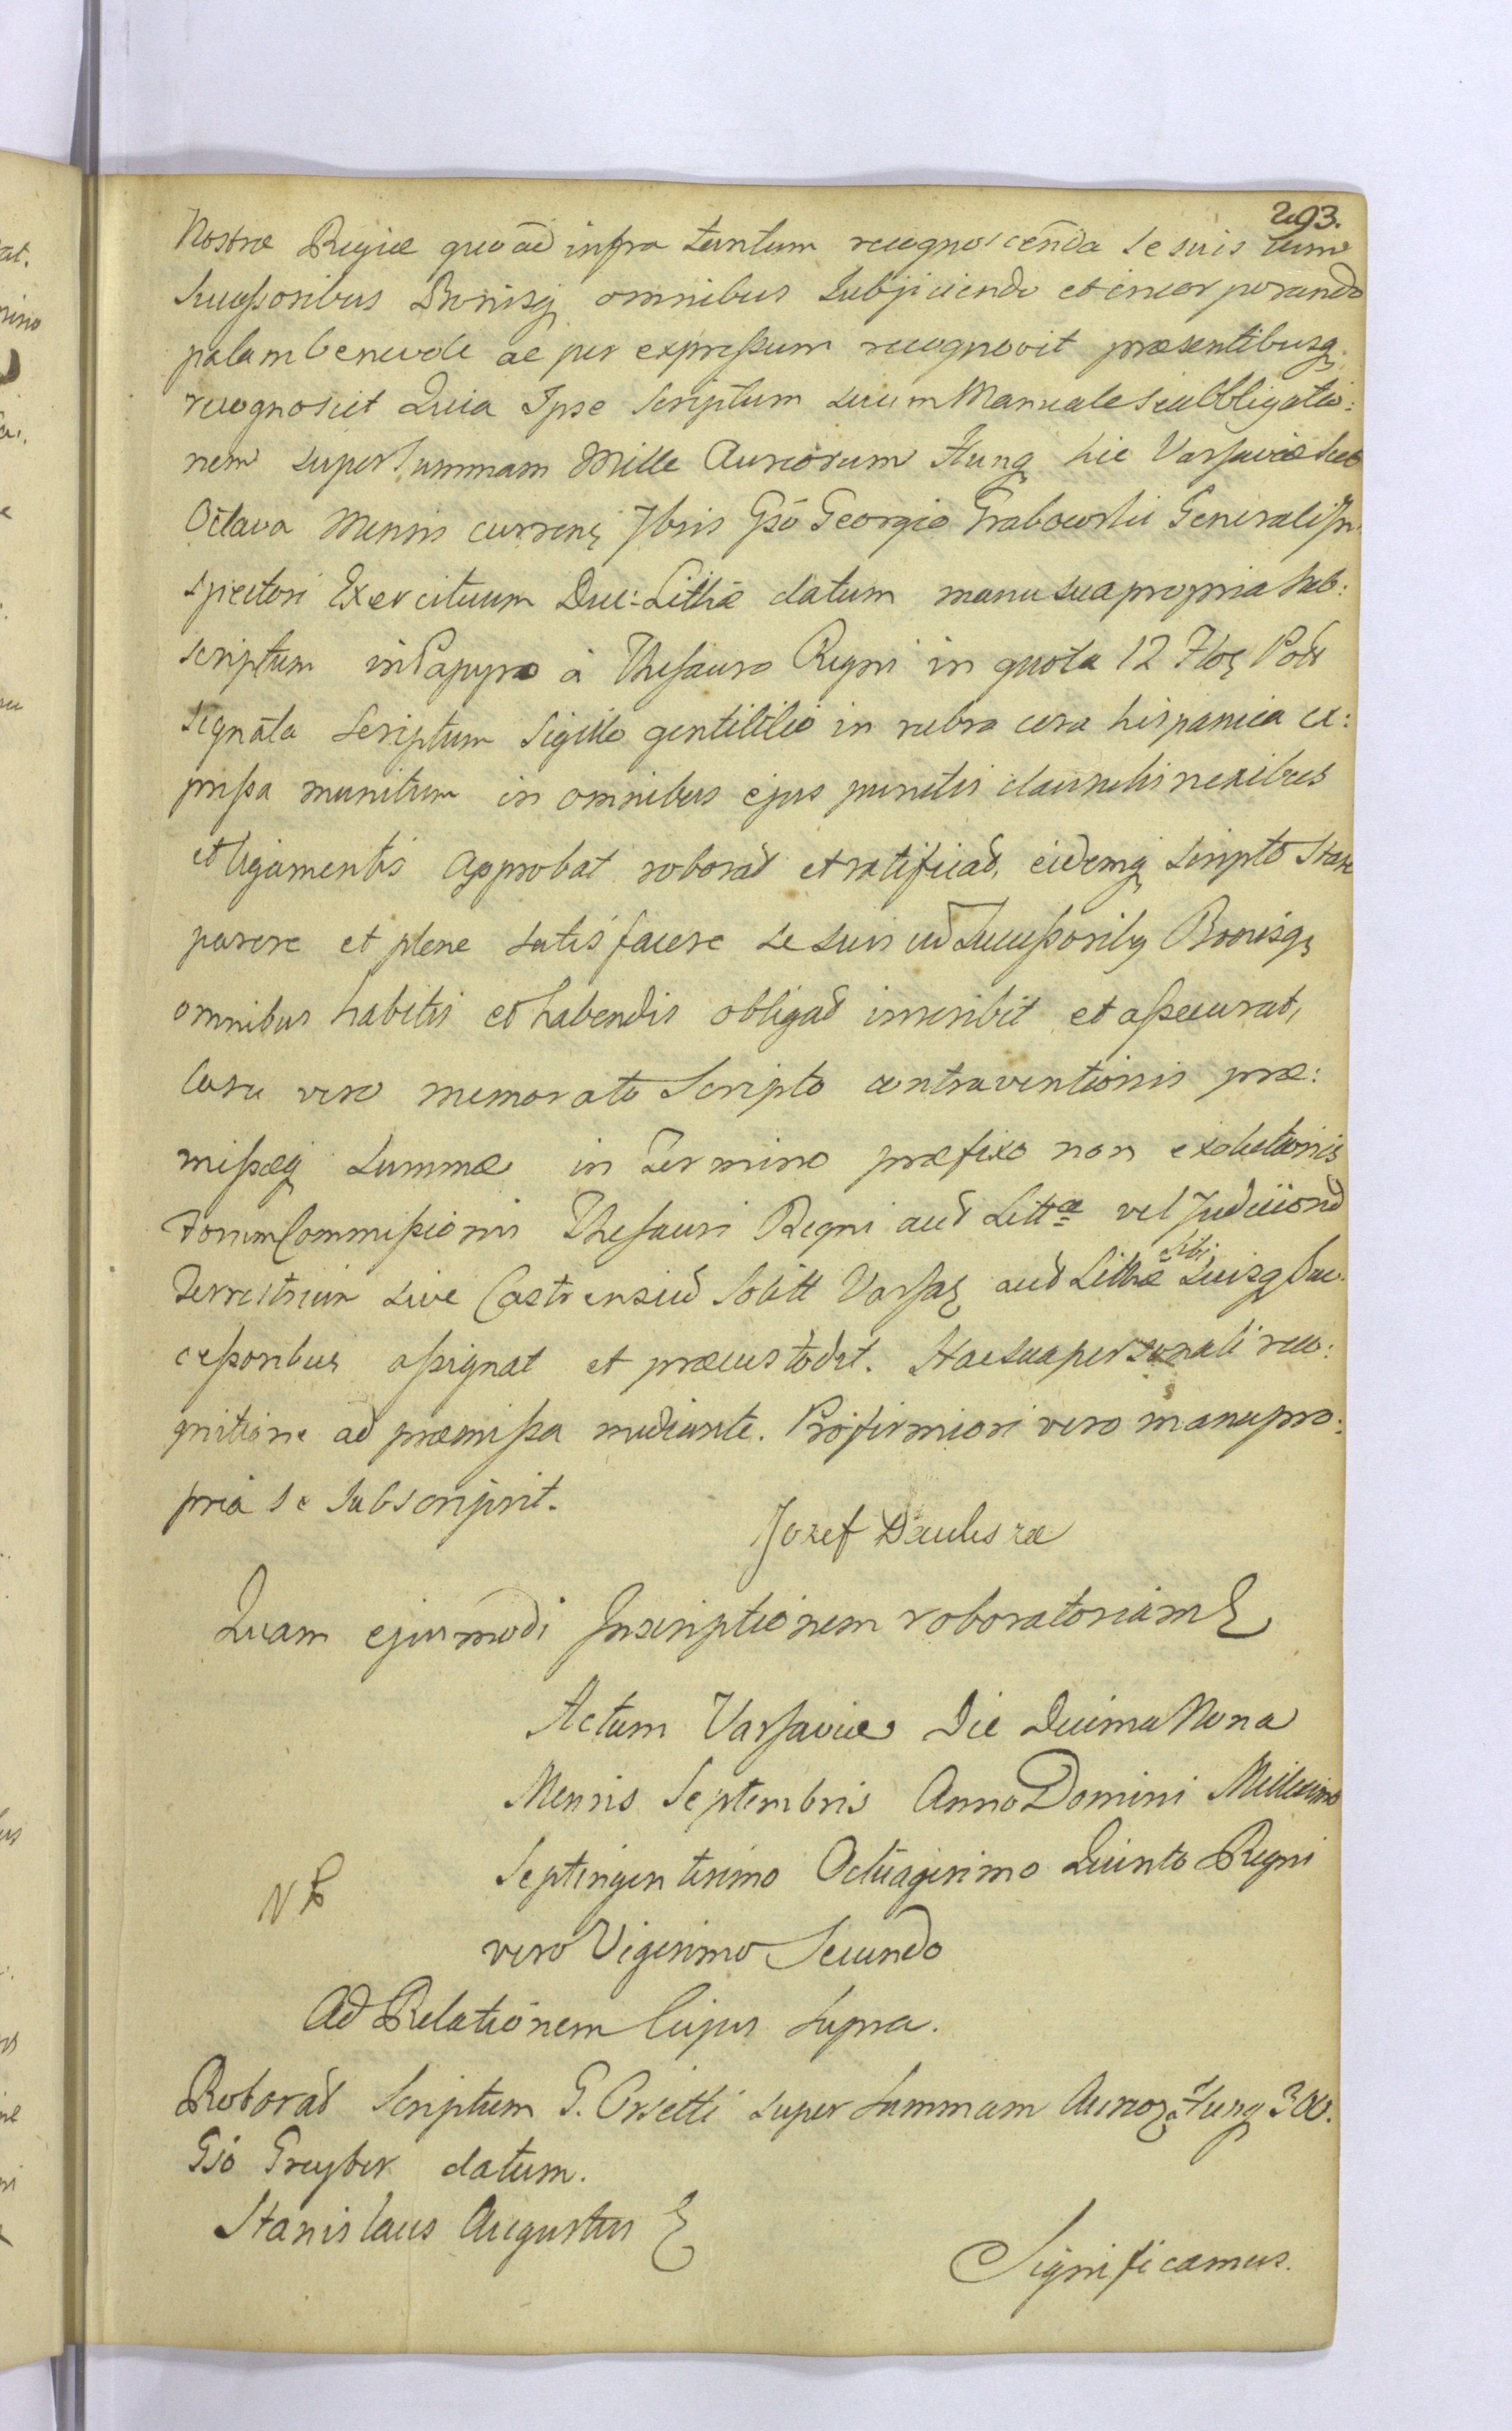 293.
Nostræ Regiæ quoad infra tantum recognoscenda se suis cum
Succeßoribus Bonisq omnibus subjiciendo et incorporando
palam benevole ac per expreßum recognovit præsentibusq
recognoscit Quia Ipse Scriptum suum Manuale seu Obligatio:
nem super Summam Mille Aureorum Hung hic Varsaviæ sub
Octava Mensis curren 7bris Gso Georgio Grabowski Generali In
spectori Exercituum Duc: Litthæ datum manu sua propria sub:
scriptum in Papyro à Thesauro Regni in quota 12 Flor Pol
signata Scriptum Sigillo gentilitio in rubra cera hispanica ex:
preßa munitum in omnibus ejus punctis clausulis nexibus
et ligamentis approbat roborat et ratificat, eidemq scripto stare
parere et plene satisfacere se suis cum Succeßoribq Bonisq
omnibus habitis et habendis obligat inscribit et aßecurat,
Casu vero memorato Scripto contraventionis præ:
mißæq summæ in Termino præfixo non exolutionis
Forum Commißionis Thesauri Regni aut Littæ vel Judiciorum
Terrestrium sive Castrensium Varsa aut Litthæ sibi suisq Suc
ceßoribus aßignat et præcustodit. Hac sua personali reco:
gnitione ad præmißa mediante. Pro firmiori vero manu pro:
pria se subscripsit.
Jozef
Quam ejusmodi Inscriptionem roboratoriam
Actum Varsaviæ Die Decima Nona
Mensis Septembris Anno Domini Millesimo
Septingentesimo Octuagesimo Quinto Regni
vero Vigesimo Secundo
Ad Relationem Cujus supra.
Roborat Scriptum G. Orsetti super summam Aureor Hung 300.
Gso Greyber datum.
Stanislaus Augustus
Significamus.